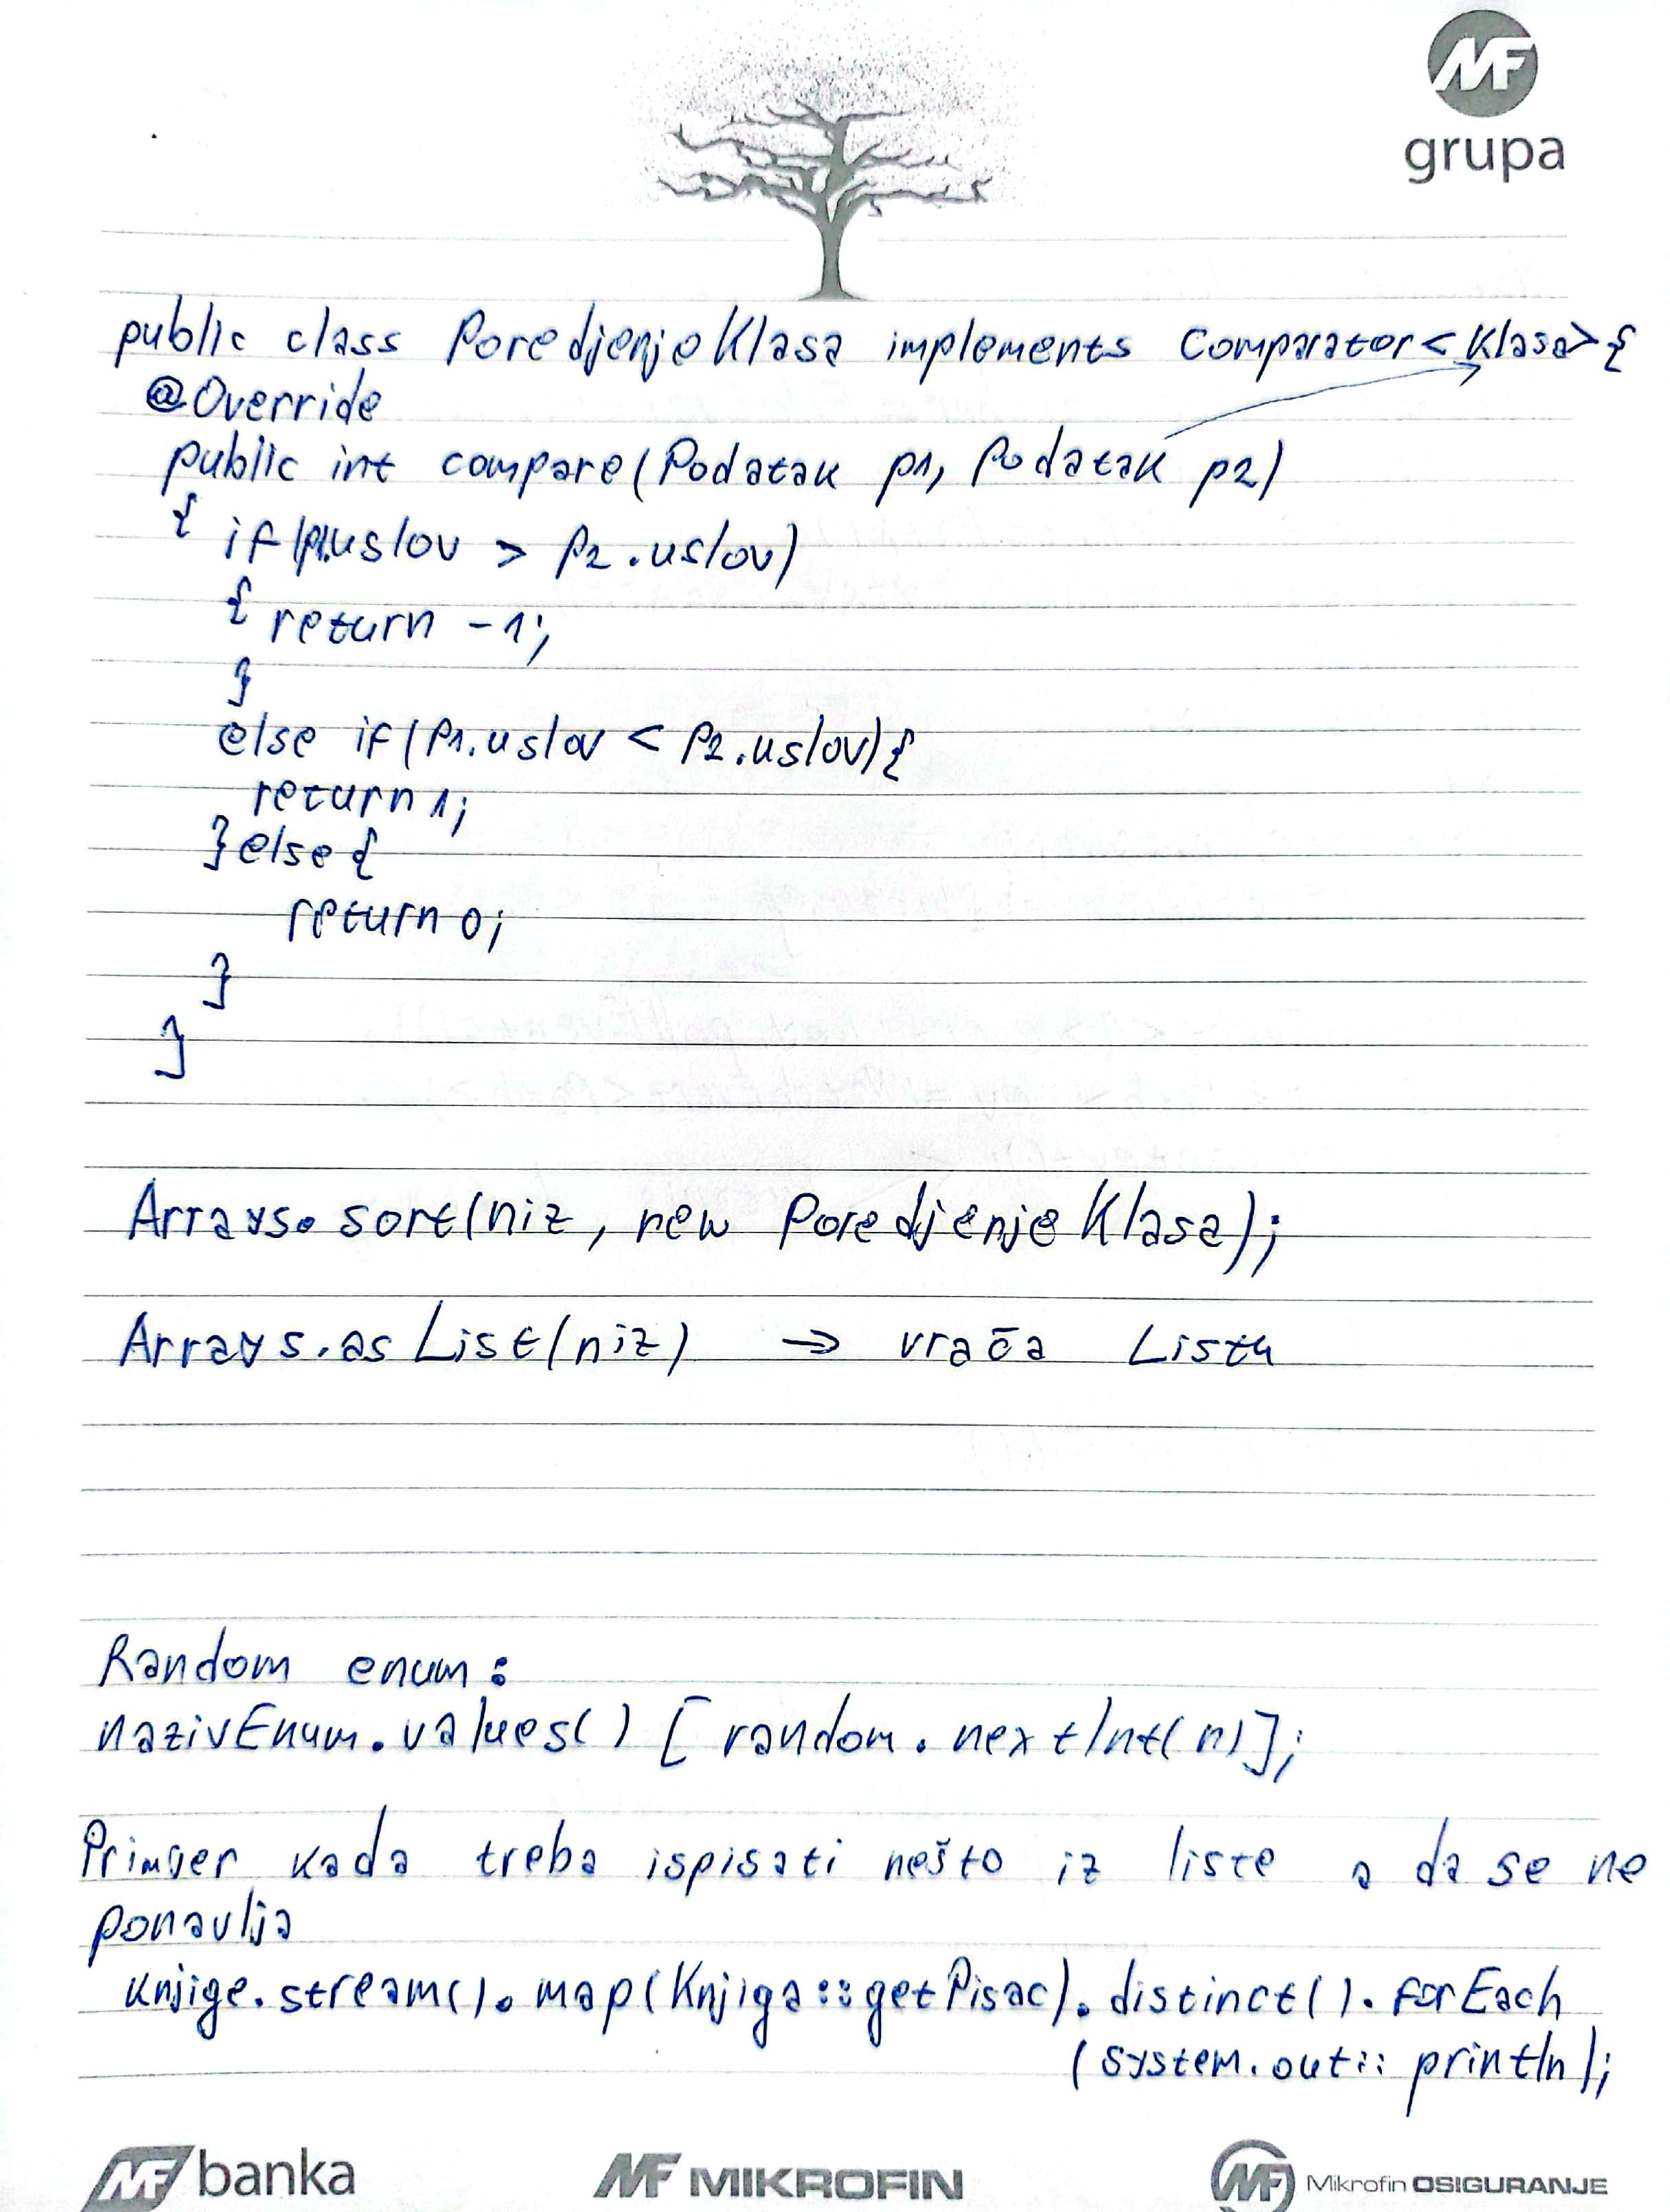 MF
grupa
public class PoredjenjeKlasa implements Comparator<Klasa>{
@Override
public int compare(Podatak p1, Podatak p2)
{ if(p1.uslov > p2.uslov)
{ return -1;
}
else if(p1.uslov < p2.uslov){
return 1;
}else{
return 0;
}
}
Arrays.sort(niz, new PoredjenjeKlasa);
Arrays.asList(niz) → vraća Listu
Random enum:
nazivEnum.values()[random.nextInt(n)];
Primjer kada treba ispisati nešto iz liste a da se ne
ponavlja
knjige.stream().map(Knjiga::getPisac).distinct().forEach
(system.out::println);
MF banka MF MIKROFIN MF Mikrofin OSIGURANJE